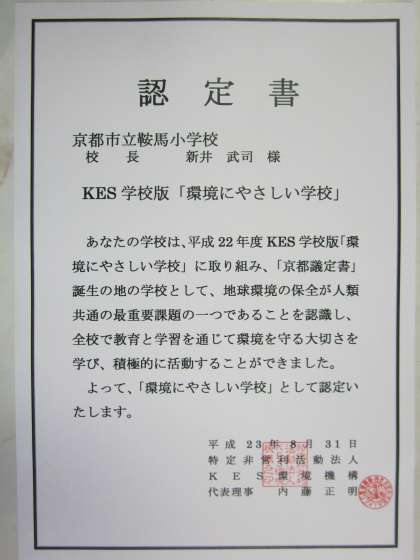 認定書
京都市立鞍馬小学校
校長 新井 武司 様
KES 学校版「環境にやさしい学校」
あなたの学校は、平成22年度KES学校版「環
境にやさしい学校」に取り組み、「京都議定書」
誕生の地の学校として、地球環境の保全が人類
共通の最重要課題の一つであることを認識し、
全校で教育と学習を通じて環境を守る大切さを
学び、積極的に活動することができました。
よって、「環境にやさしい学校」として認定い
たします。
平成23年8月31日
特定非営利活動法人
KES環境機構
代表理事 内藤正明